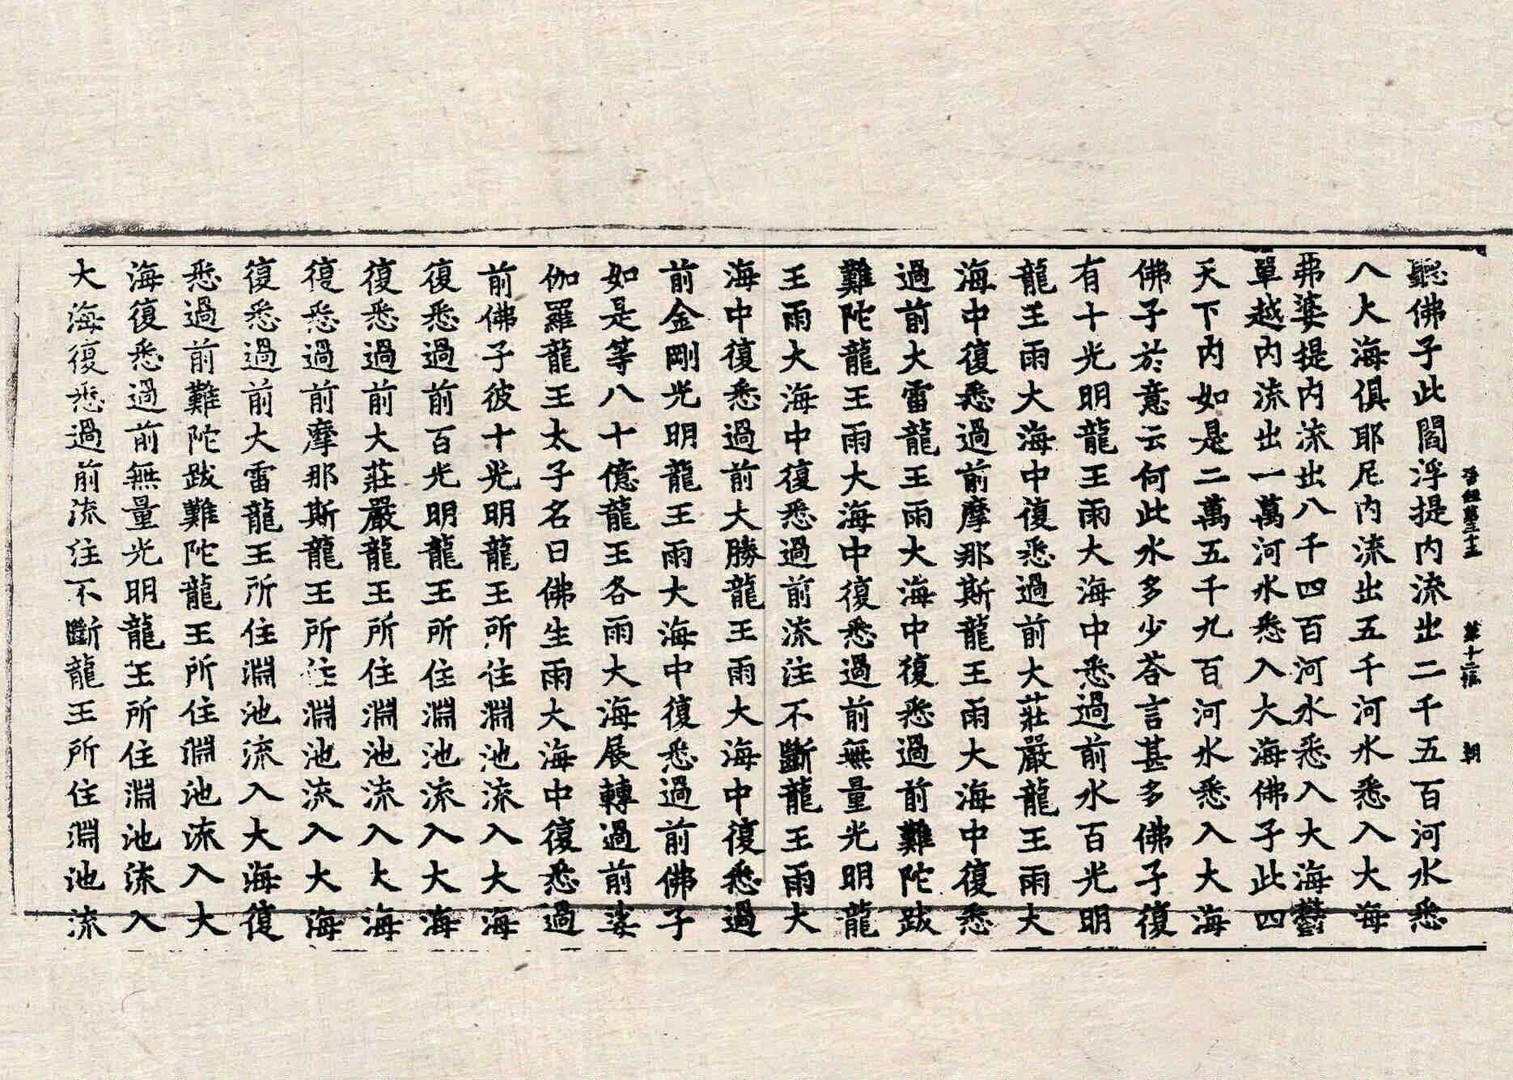 聽佛子此閻浮提内流出二千五百河水悉
八大海俱耶尼内流出五千河水悉入大海
弗婆提内流出八千四百河水悉入大海鬱
單越内流出一萬河水悉入大海佛子此四
天下内如是二萬五千九百河水悉入大海
佛子於意云何此水多少荅言甚多佛子復
有十光明龍王雨大海中悉過前水百光明
龍王雨大海中復悉過前大莊嚴龍王雨大
海中復悉過前摩那斯龍王雨大海中復悉
過前大雷龍王雨大海中復悉過前難陀跋
難陀龍王雨大海中復悉過前無量光明龍
王雨大海中復悉過前流注不斷龍王雨大
海中復悉過前大勝龍王雨大海中復悉過
前金剛光明龍王雨大海中復悉過前佛子
如是等八十億龍王各雨大海展轉過前娑
伽羅龍王太子名曰佛生雨大海中復悉過
前佛子彼十光明龍王所住淵池流入大海
復悉過前百光明龍王所住淵池流入大海
復悉過前大莊嚴龍王所住淵池流入大海
復悉過前摩那斯龍王所住淵池流入大海
復悉過前大雷龍王所住淵池流入大海復
悉過前難陀跋難陀龍王所住淵池流入大
海復悉過前無量光明龍王所住淵池流入
大海復悉過前流注不斷龍王所住淵池流